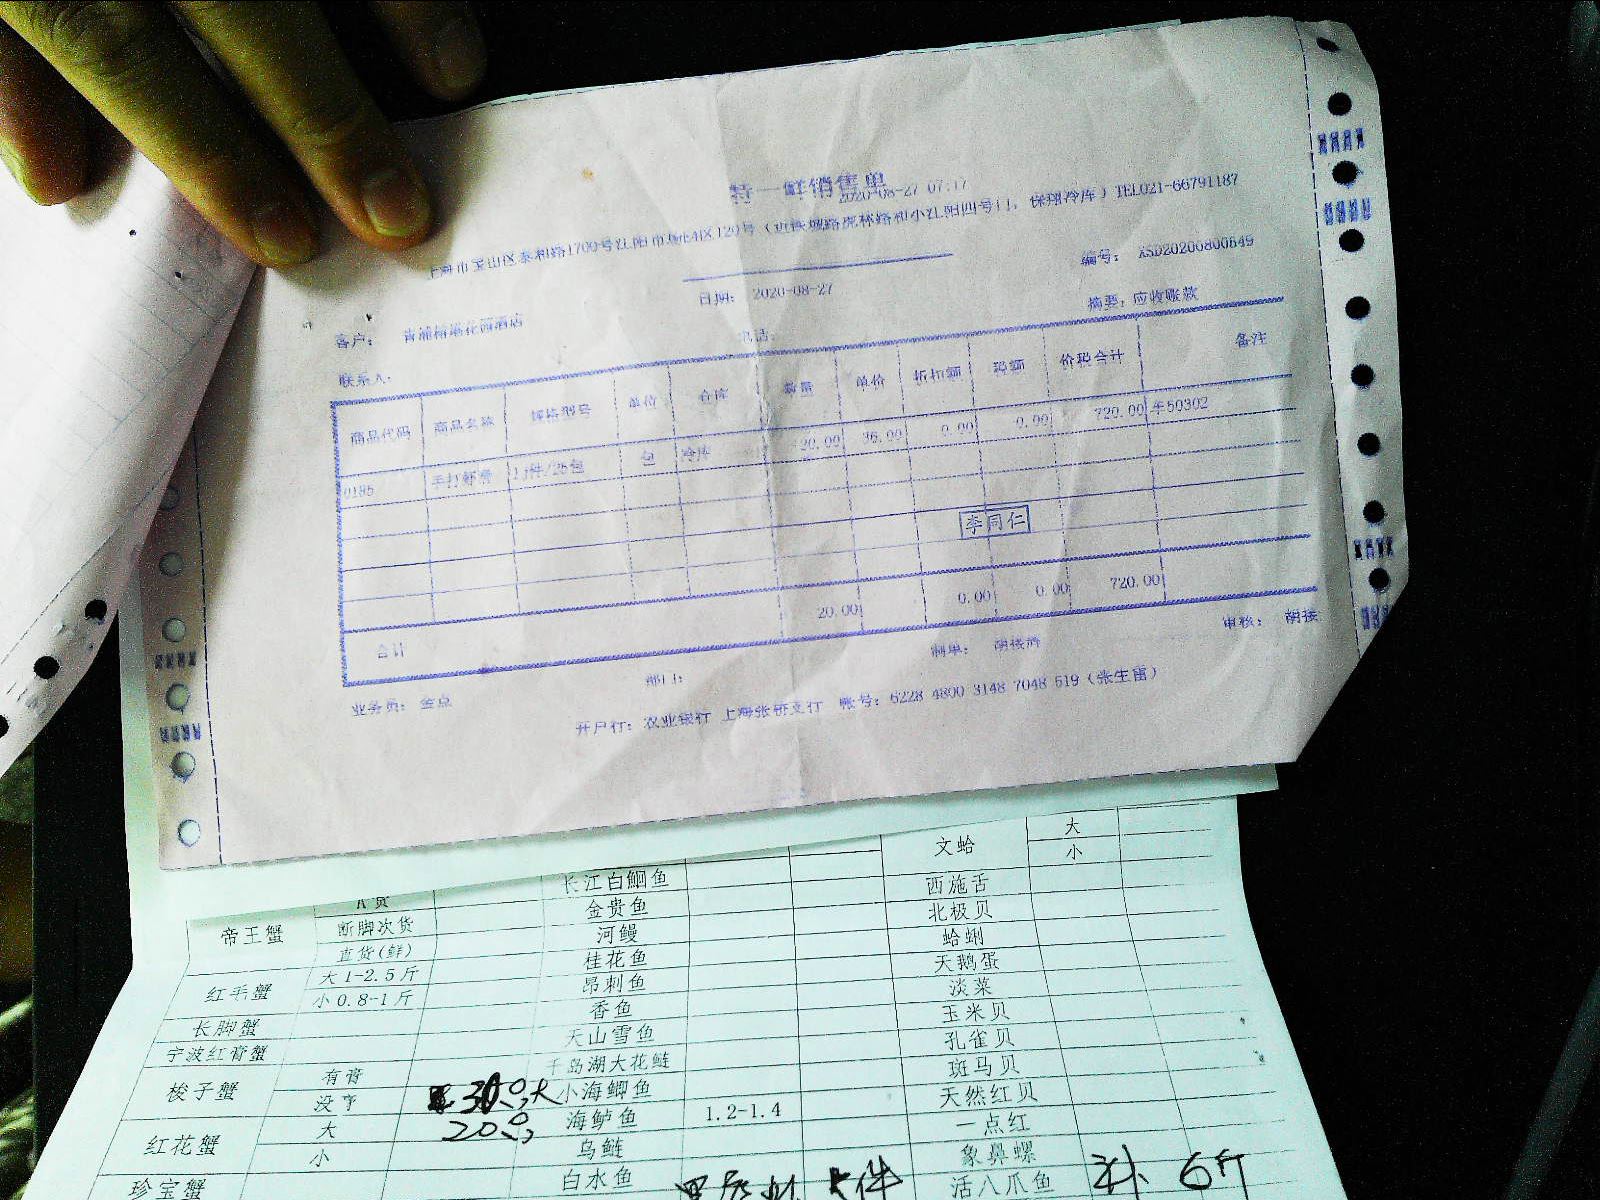 特一鲜销售单
2020-08-27 07:17
上海市宝山区泰和路1700号江阳市场北4区120号（近铁城路虎林路和小江阳四号门，保翔冷库）TEL021-66791187
编号： XSD20200800849
日期： 2020-08-27
摘要：应收账款
客户： 花园酒店
电话：
联系人：
商品代码 商品名称 规格型号 单位 仓库 数量 单价 折扣额 税额 价税合计 备注
0185 手打虾滑 1件/25包 包 冷库 20.00 36.00 0.00 0.00 720.00 午50302
李同仁
合计 20.00 0.00 0.00 720.00
业务员： 金点 部门： 制单： 审核：
开户行：农业银行 上海张桥支行 账号：6228 4800 3148 7048 519（张生雷）
文蛤 大
小
长江白鮰鱼 西施舌
帝王蟹 A货 金贵鱼 北极贝
断脚次货 河鳗 蛤蜊
直货(鲜) 桂花鱼 天鹅蛋
红毛蟹 大1-2.5斤 昂刺鱼 淡菜
小0.8-1斤 香鱼 玉米贝
长脚蟹 天山雪鱼 孔雀贝
宁波红膏蟹 千岛湖大花鲢 斑马贝
梭子蟹 有膏 小海鲫鱼 天然红贝
没亨 30 大 海鲈鱼 1.2-1.4 一点红
红花蟹 大 20 乌鲢 象鼻螺
小 白水鱼 活八爪鱼 6斤
珍宝蟹